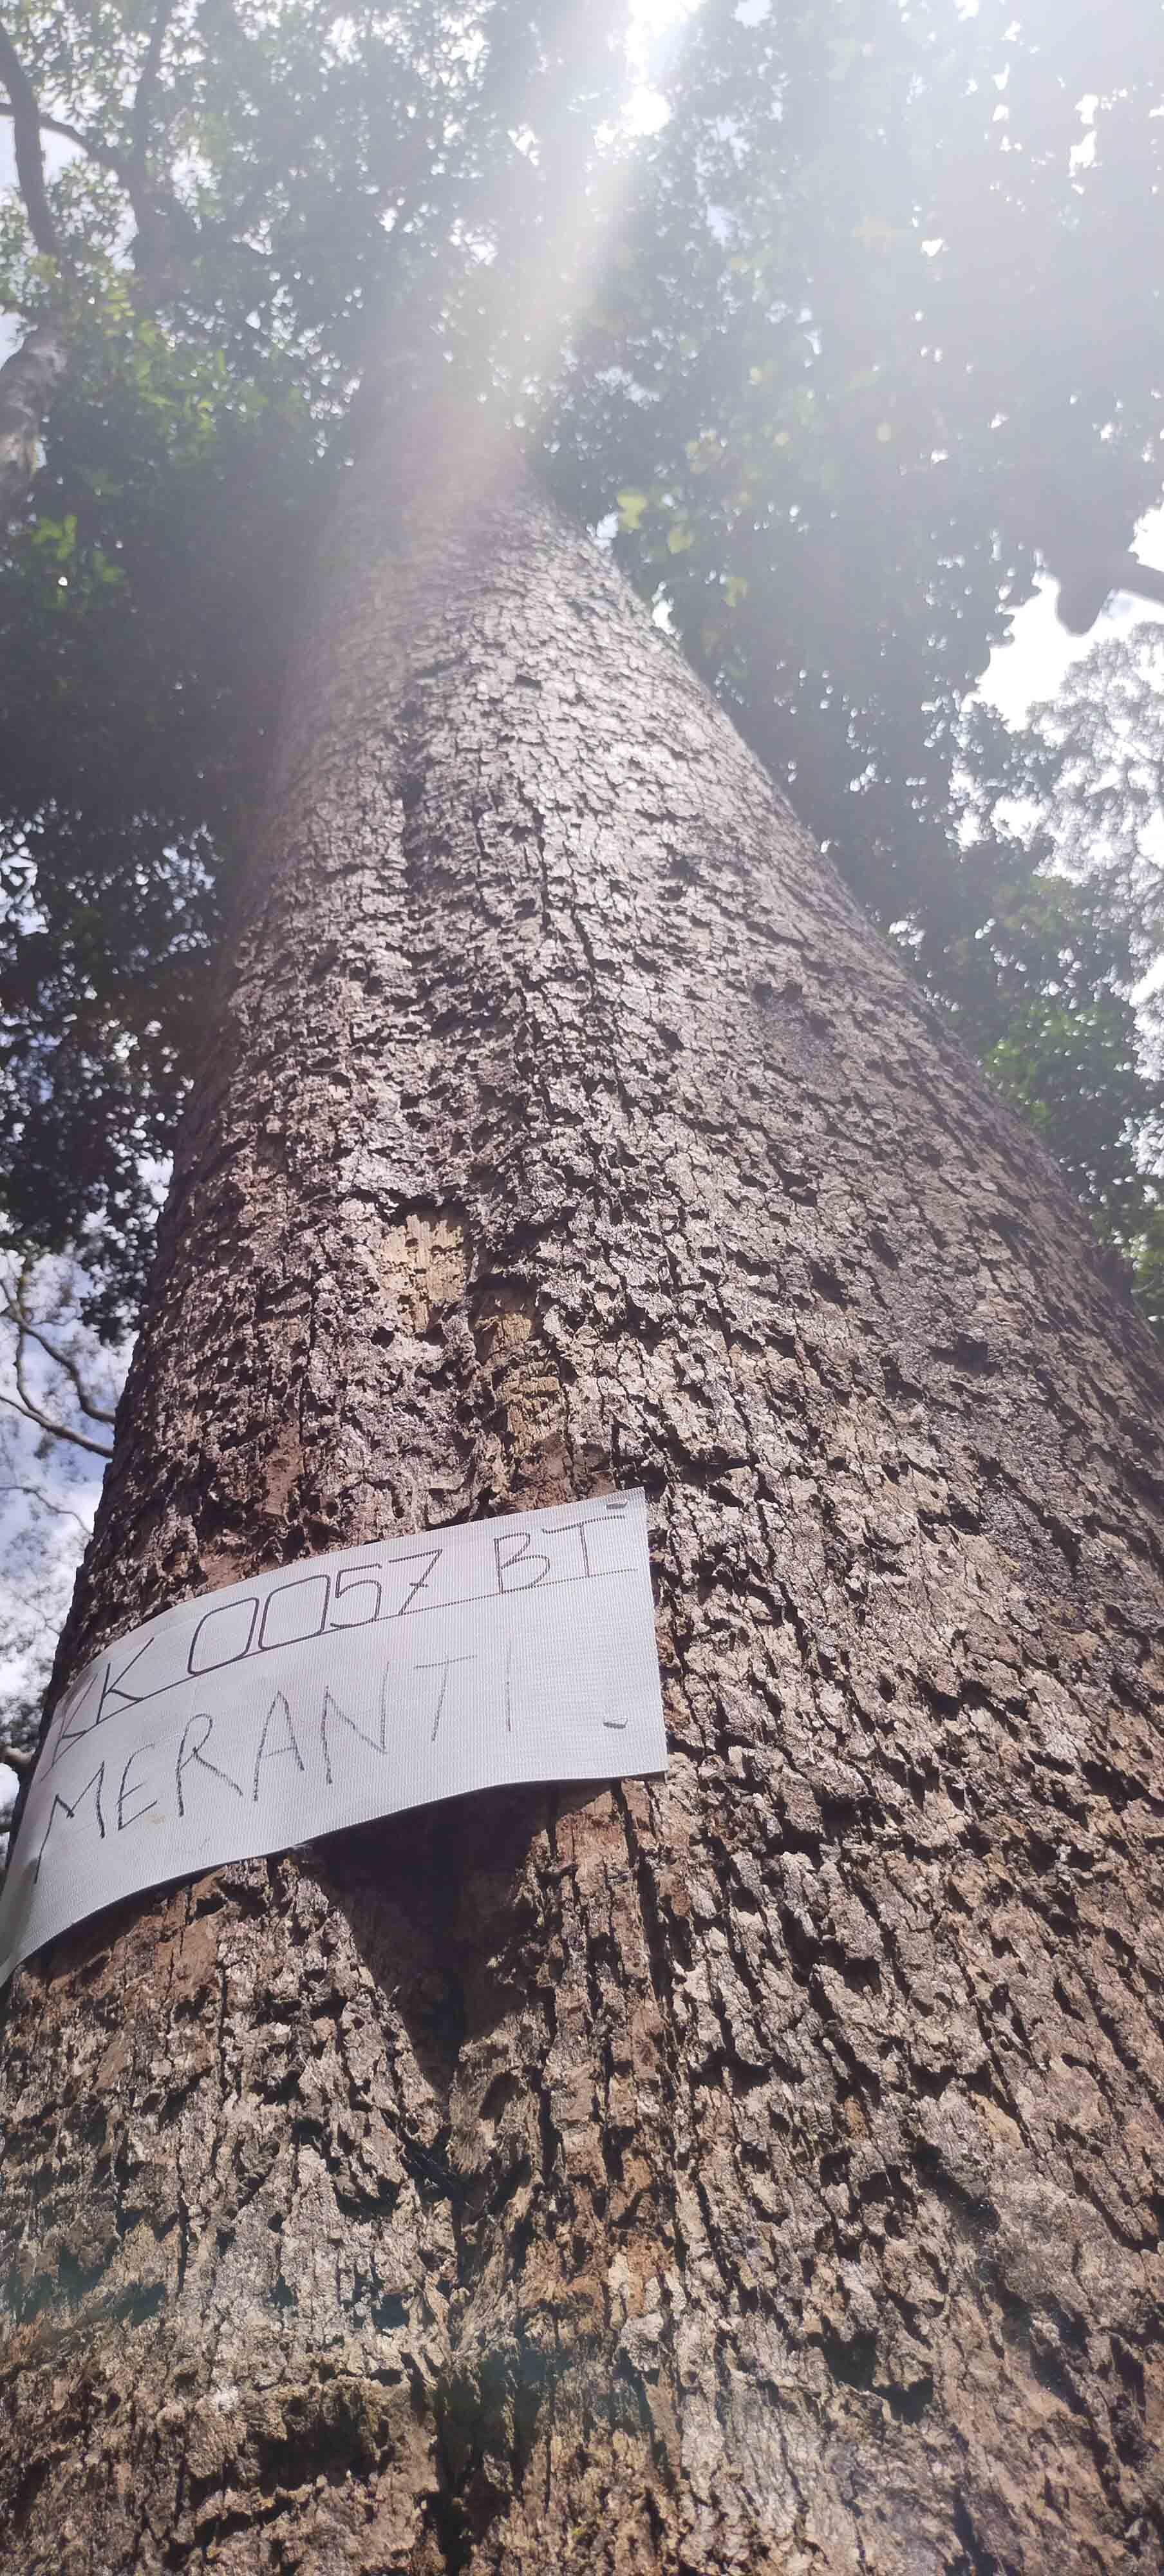 AK 0057 BT
MERANTI